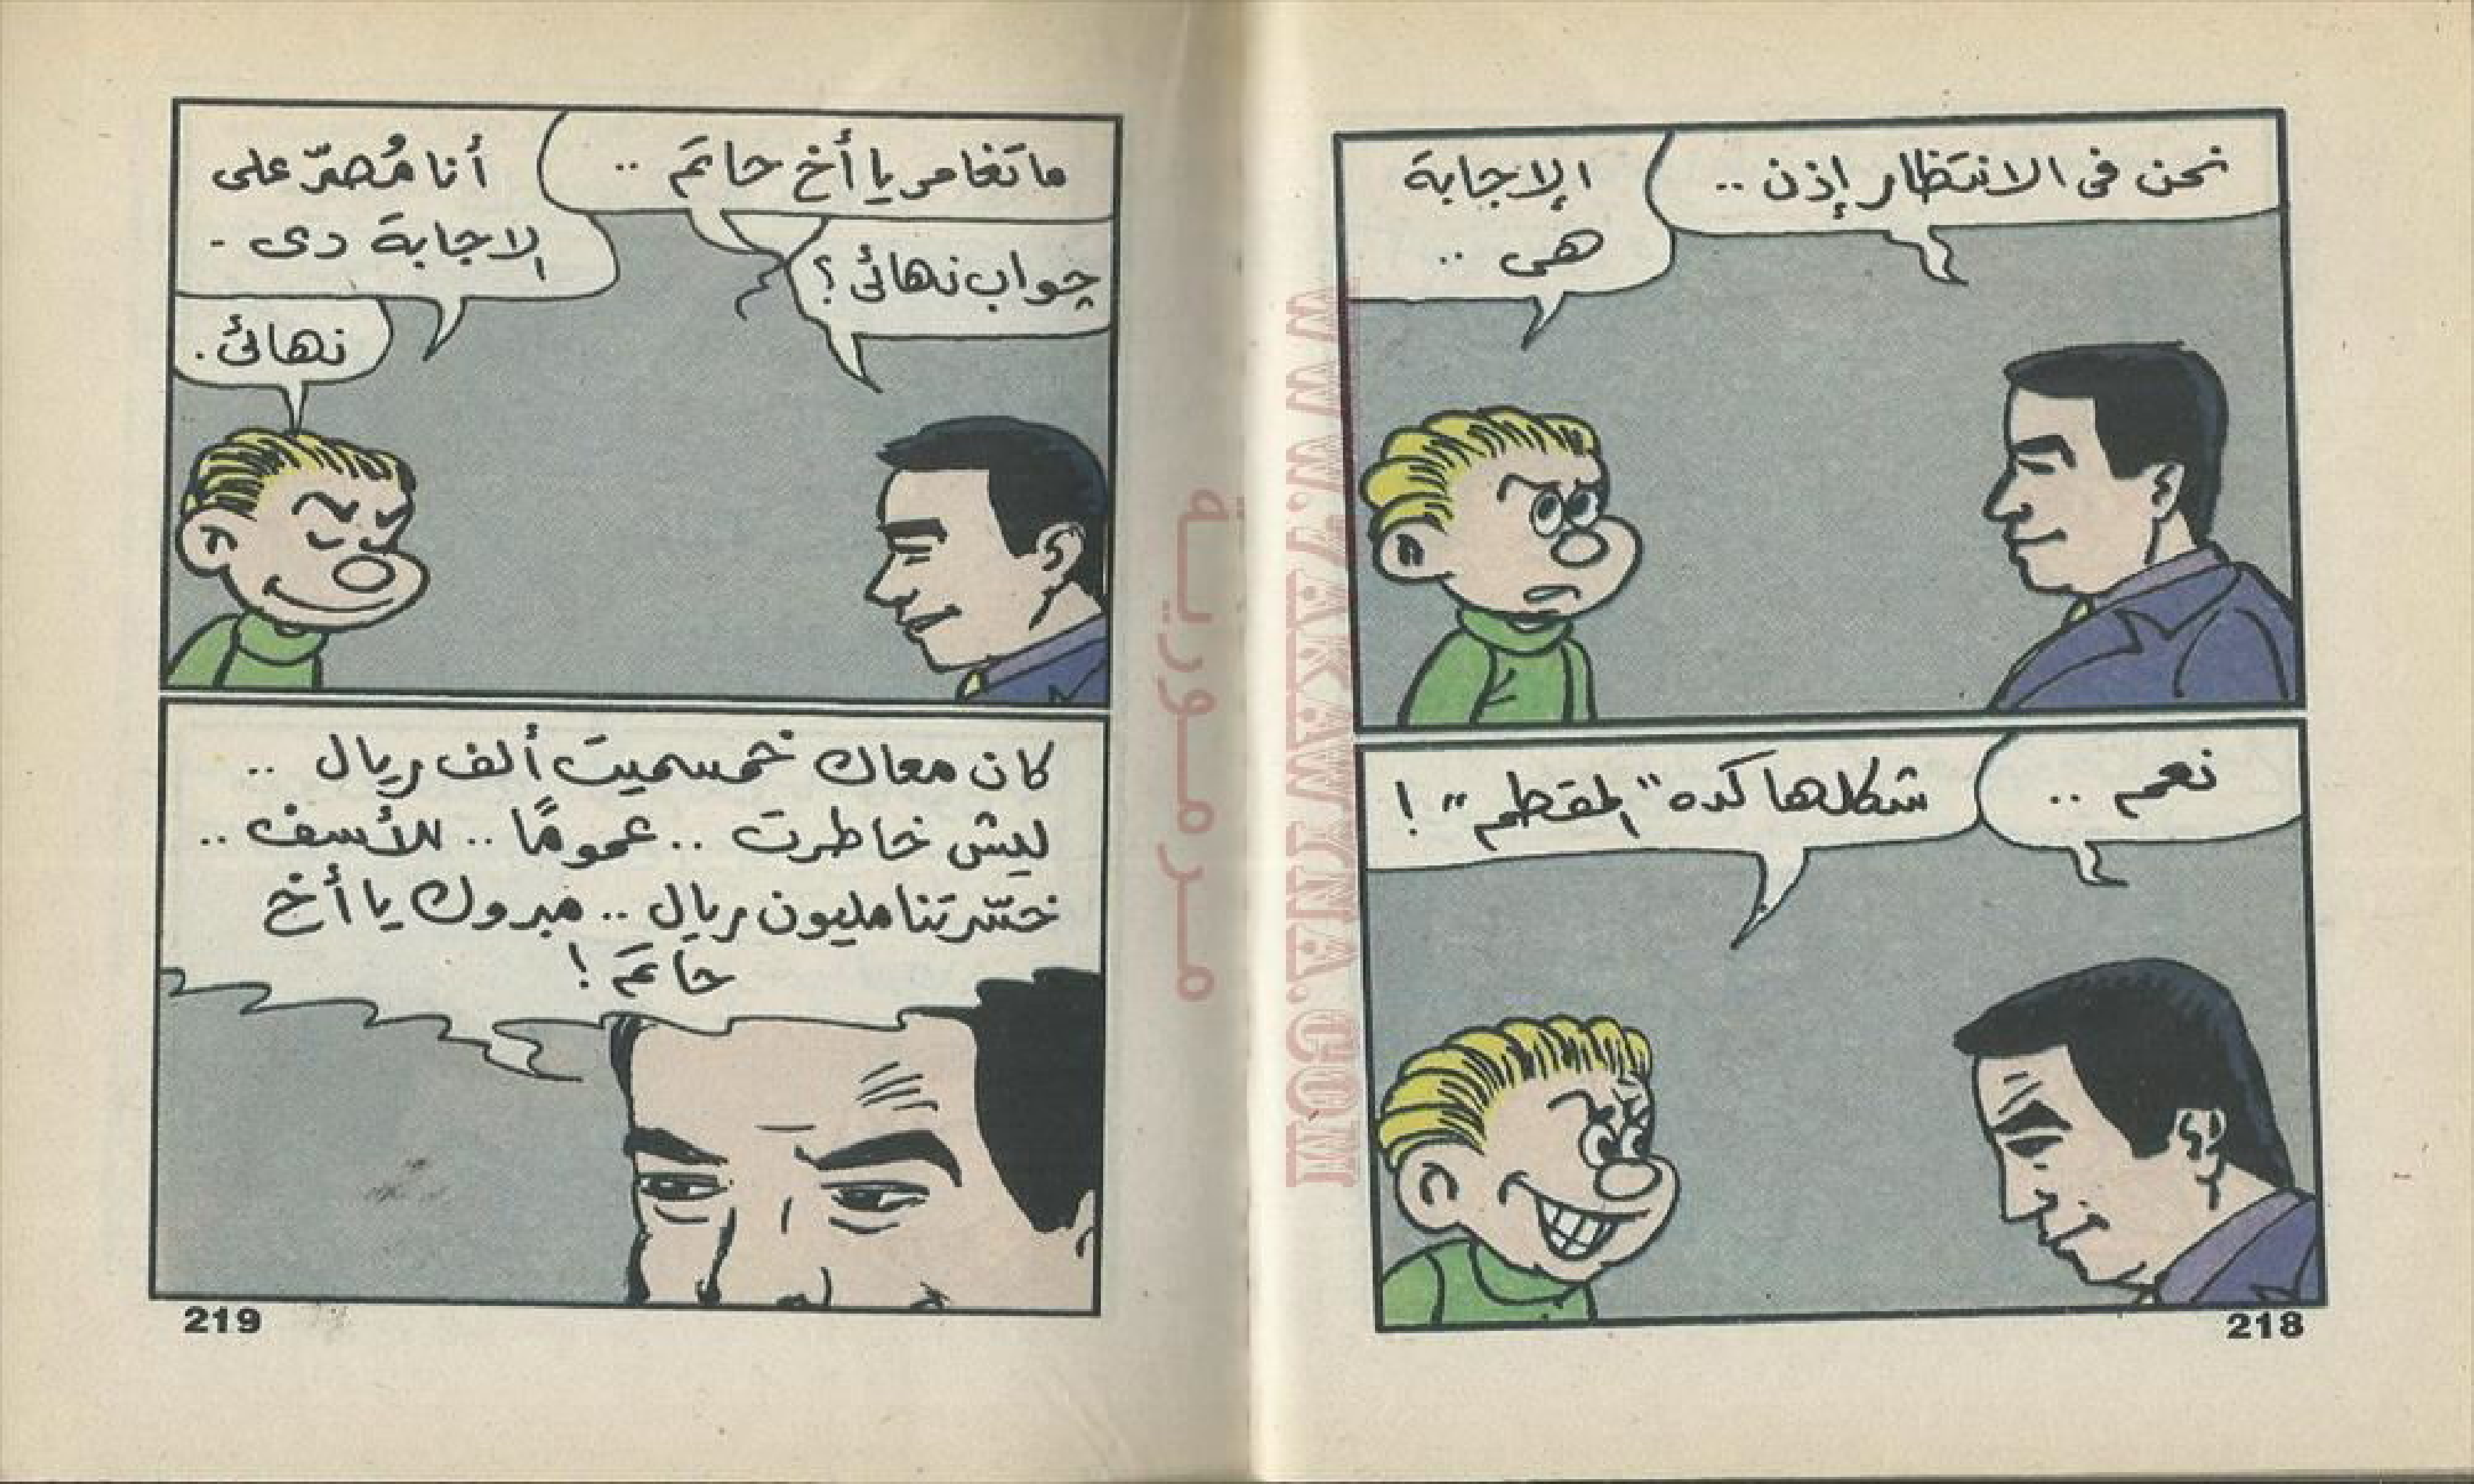 نحن فى الانتظار إذن ..
الإجابة
هى ..
نعم ..
شكلها كده "المقطم" !
218
ما تغامر يا أخ حاتم ..
جواب نهائى ؟
أنا مُصرّ على
الإجابة دى -
نهائى .
كان معاك خمسميت ألف ريال ..
ليش خاطرت .. عمومًا .. للأسف ..
خسّرتنا مليون ريال .. مبروك يا أخ
حاتم !
219
مرمورية
WWW.ARAKAWKNA.COM